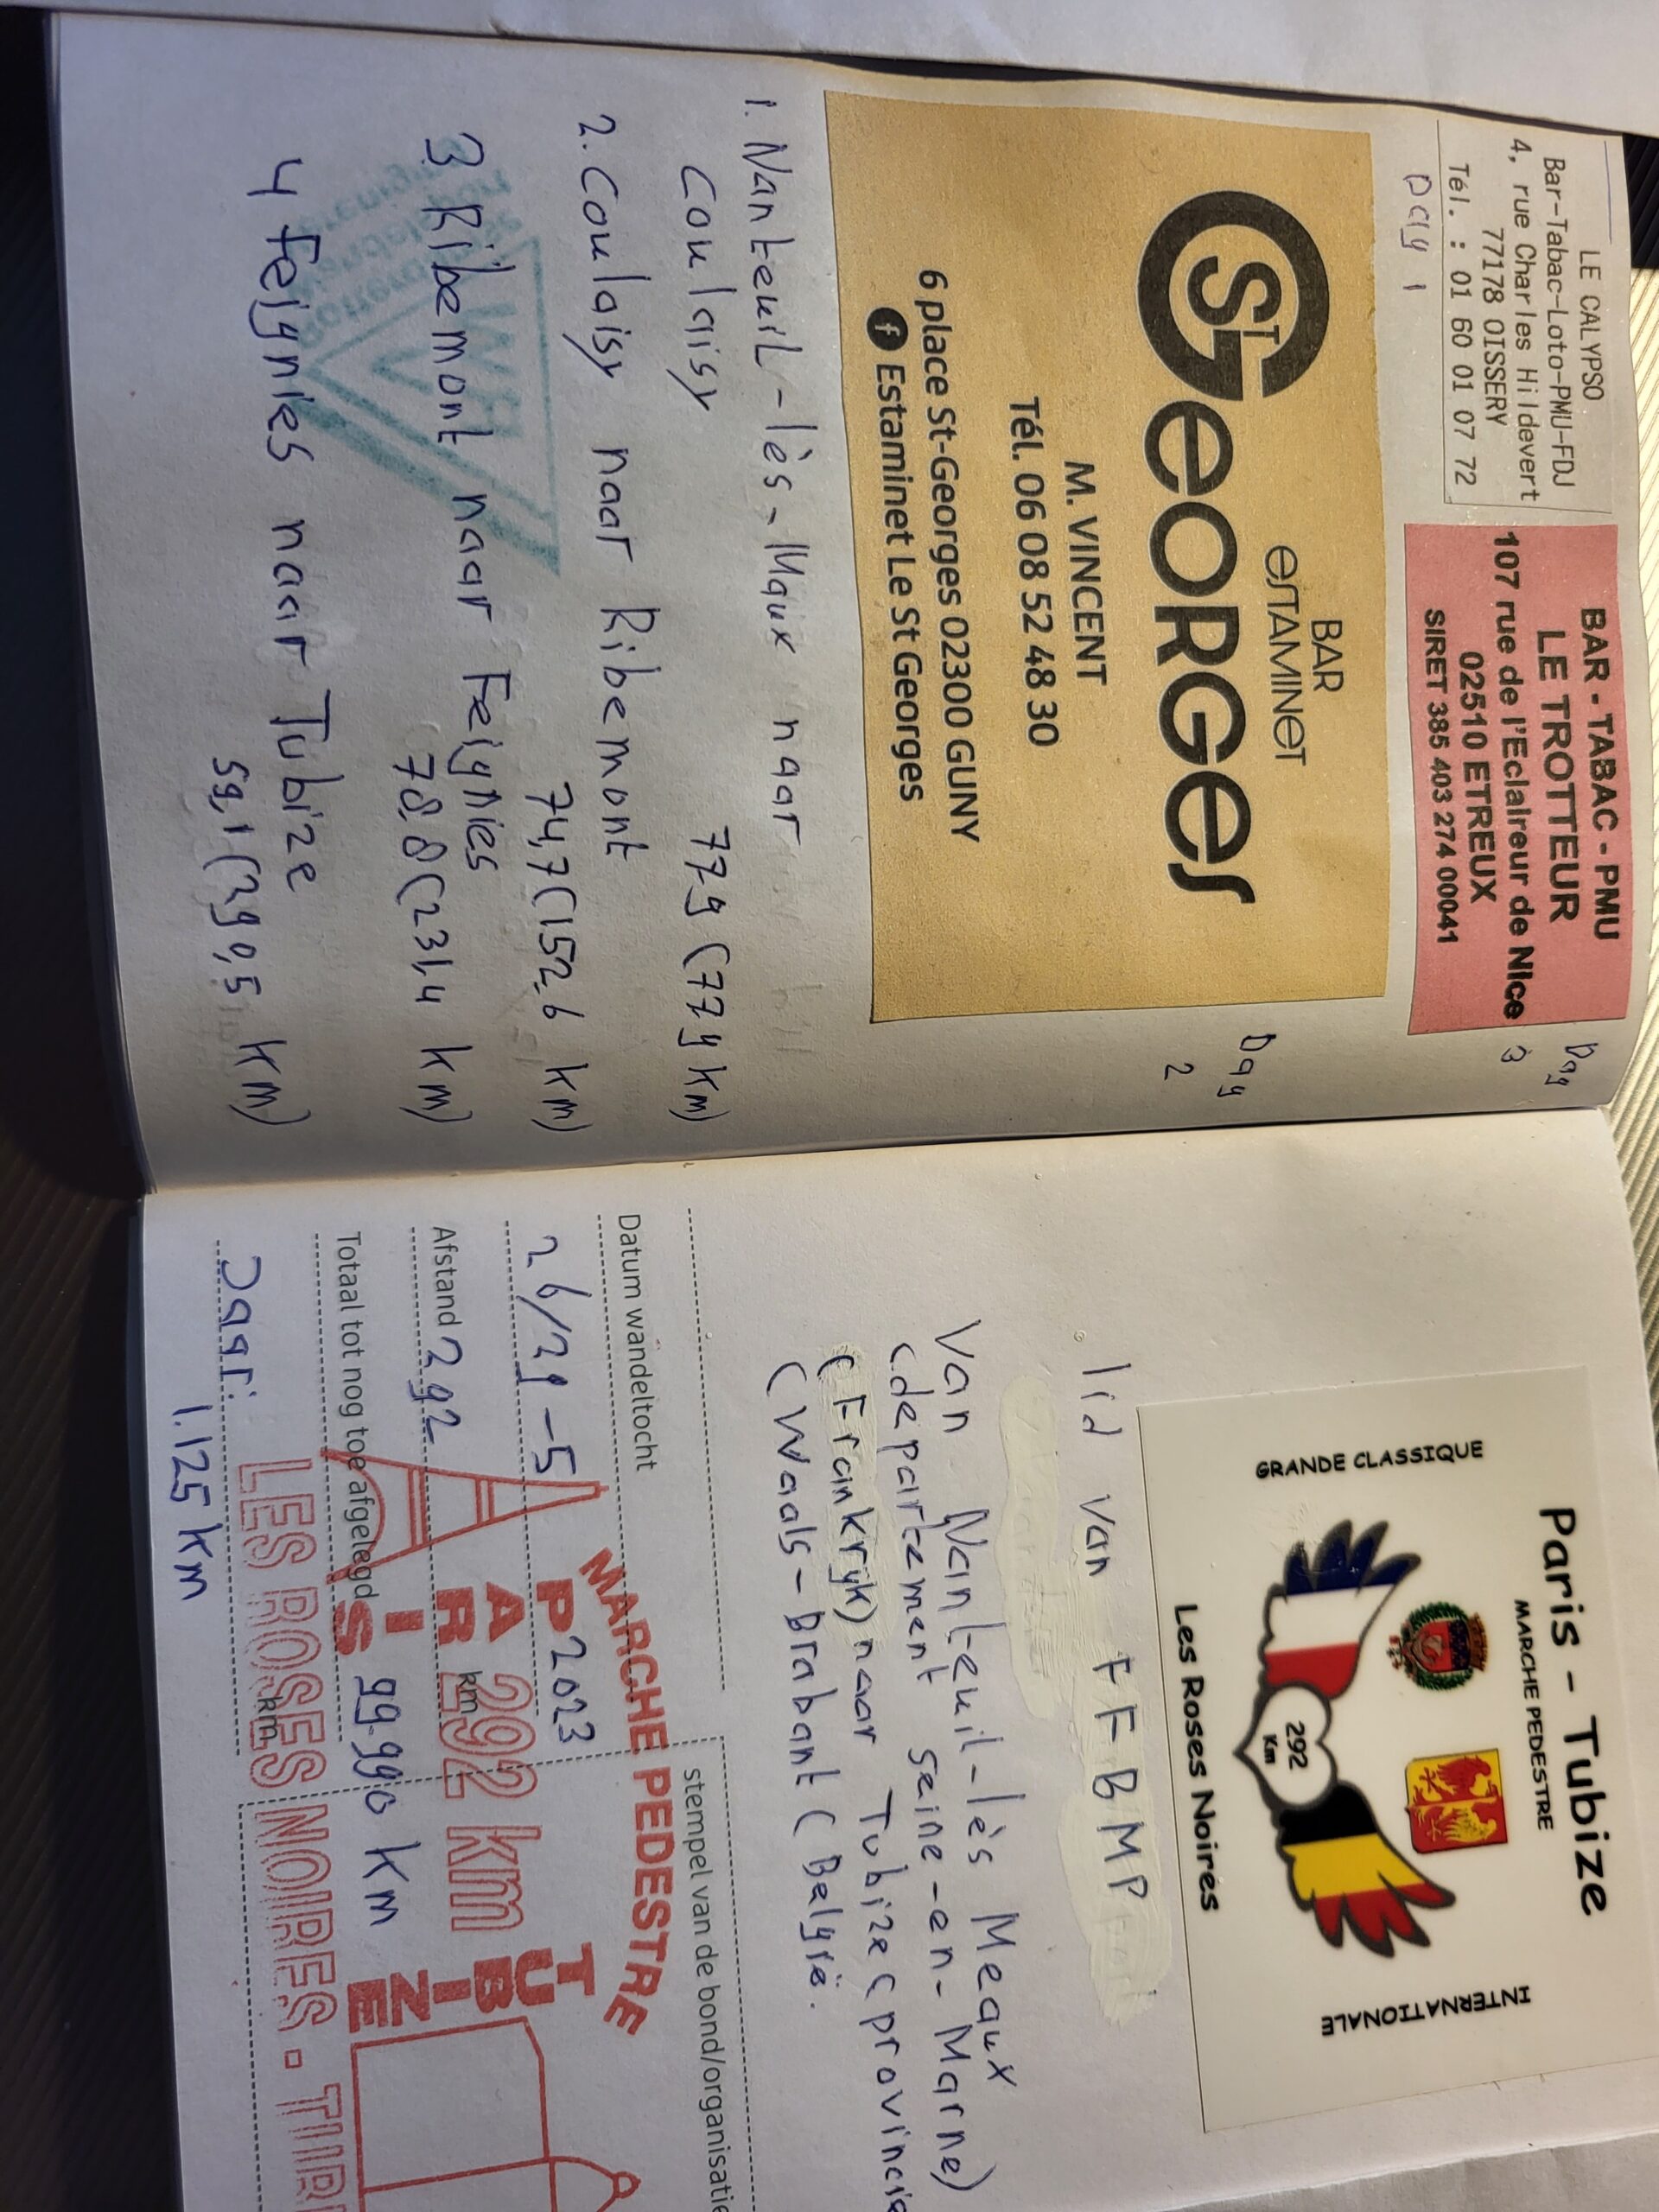 LE CALYPSO
Bar-Tabac-Loto-PMU-FDJ
4, rue Charles Hildevert
77178 OISSERY
Tél. : 01 60 01 07 72
Dag 1
BAR - TABAC - PMU
LE TROTTEUR
107 rue de l'Eclaireur de Nice
02510 ETREUX
SIRET 385 403 274 00041
Dag
3
BAR
eſTAMINeT
ST GeORGeſ
M. VINCENT
Tél. 06 08 52 48 30
6 place St-Georges 02300 GUNY
f Estaminet Le St Georges
Dag
2
1. Nanteuil-lès-Maux naar
Coulaisy
77,9 (77,9 km)
2. Coulaisy naar Ribemont
74,7 (152,6 km)
3 Ribemont naar Feignies
78,8 (231,4 km)
4 Feignies naar Tubize
59,1 (290,5 km)
Paris - Tubize
MARCHE PEDESTRE
GRANDE CLASSIQUE
INTERNATIONALE
292
Km
Les Roses Noires
lid van FFBMP
Van Nanteuil-lès Meaux
(departement seine-en-Marne)
(Frankryk) naar Tubize (provincie
(Waals-Brabant (België.
stempel van de bond/organisatie
Datum wandeltocht
26/29-5 2023
Afstand 292 km
Totaal tot nog toe afgelegd 99.990 km
km
Daar: 1.125 km
MARCHE PEDESTRE
PARIS
292 km
TUBIZE
LES ROSES NOIRES -